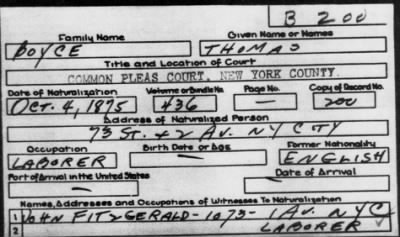 B 200
Family Name Given Name or Names
BOYCE THOMAS
Title and Location of Court
COMMON PLEAS COURT, NEW YORK COUNTY.
Date of Naturalization Volume or Bundle No. Page No. Copy of Record No.
OCT. 4, 1875 436 — 200
Address of Naturalized Person
73 St. & 2 AV. N Y CITY
Occupation Birth Date or Age Former Nationality
LABORER — ENGLISH
Port of Arrival in the United States Date of Arrival
— —
Names, Addresses and Occupations of Witnesses To Naturalization
1 JOHN FITZGERALD - 1073 - 1 AV. NYC
2 LABORER